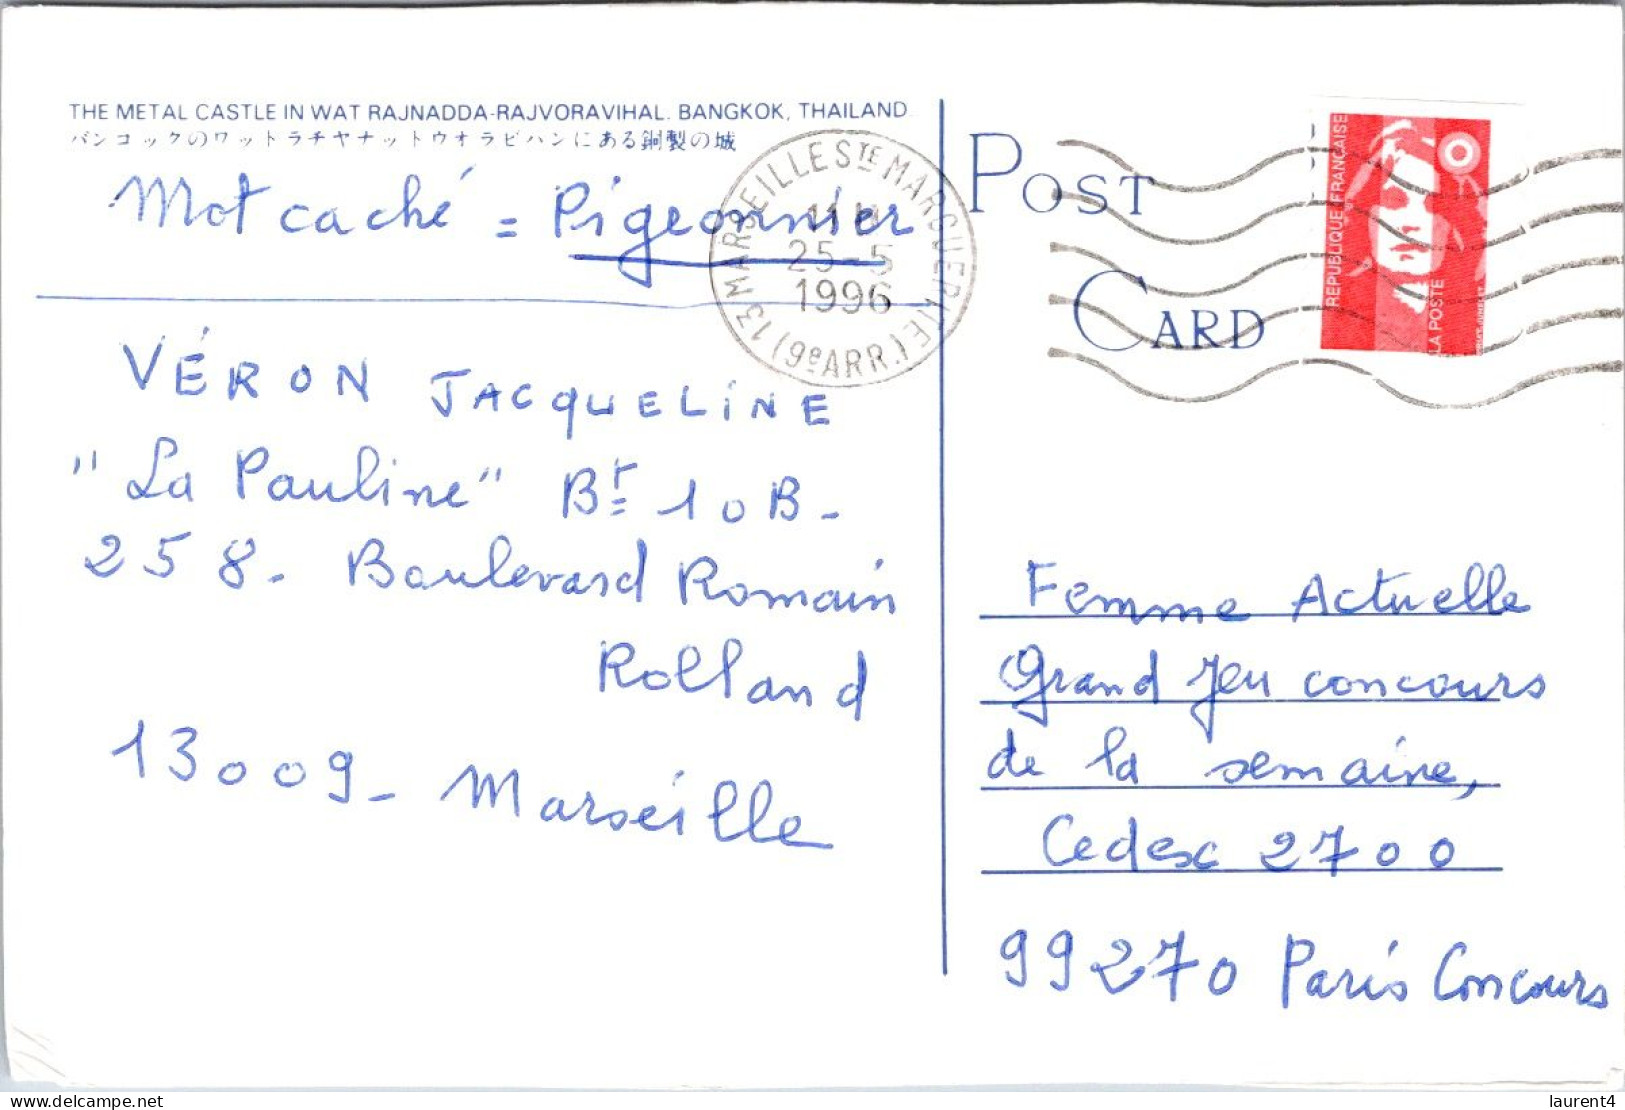 THE METAL CASTLE IN WAT RAJNADDA-RAJVORAVIHAL. BANGKOK, THAILAND
バンコックのワットラチヤナットウオラビハンにある銅製の城
Mot caché = Pigeonnier
VÉRON JACQUELINE
"La Pauline" Bt 10B-
258- Boulevard Romain
Rolland
13009- Marseille
13 MARSEILLE STE MARGUERITE (9e ARR.)
25-5
1996
POST
CARD
REPUBLIQUE FRANÇAISE
LA POSTE
Femme Actuelle
Grand Jeu concours
de la semaine,
Cedex 2700
99270 Paris Concours
delcampe.net
laurent4